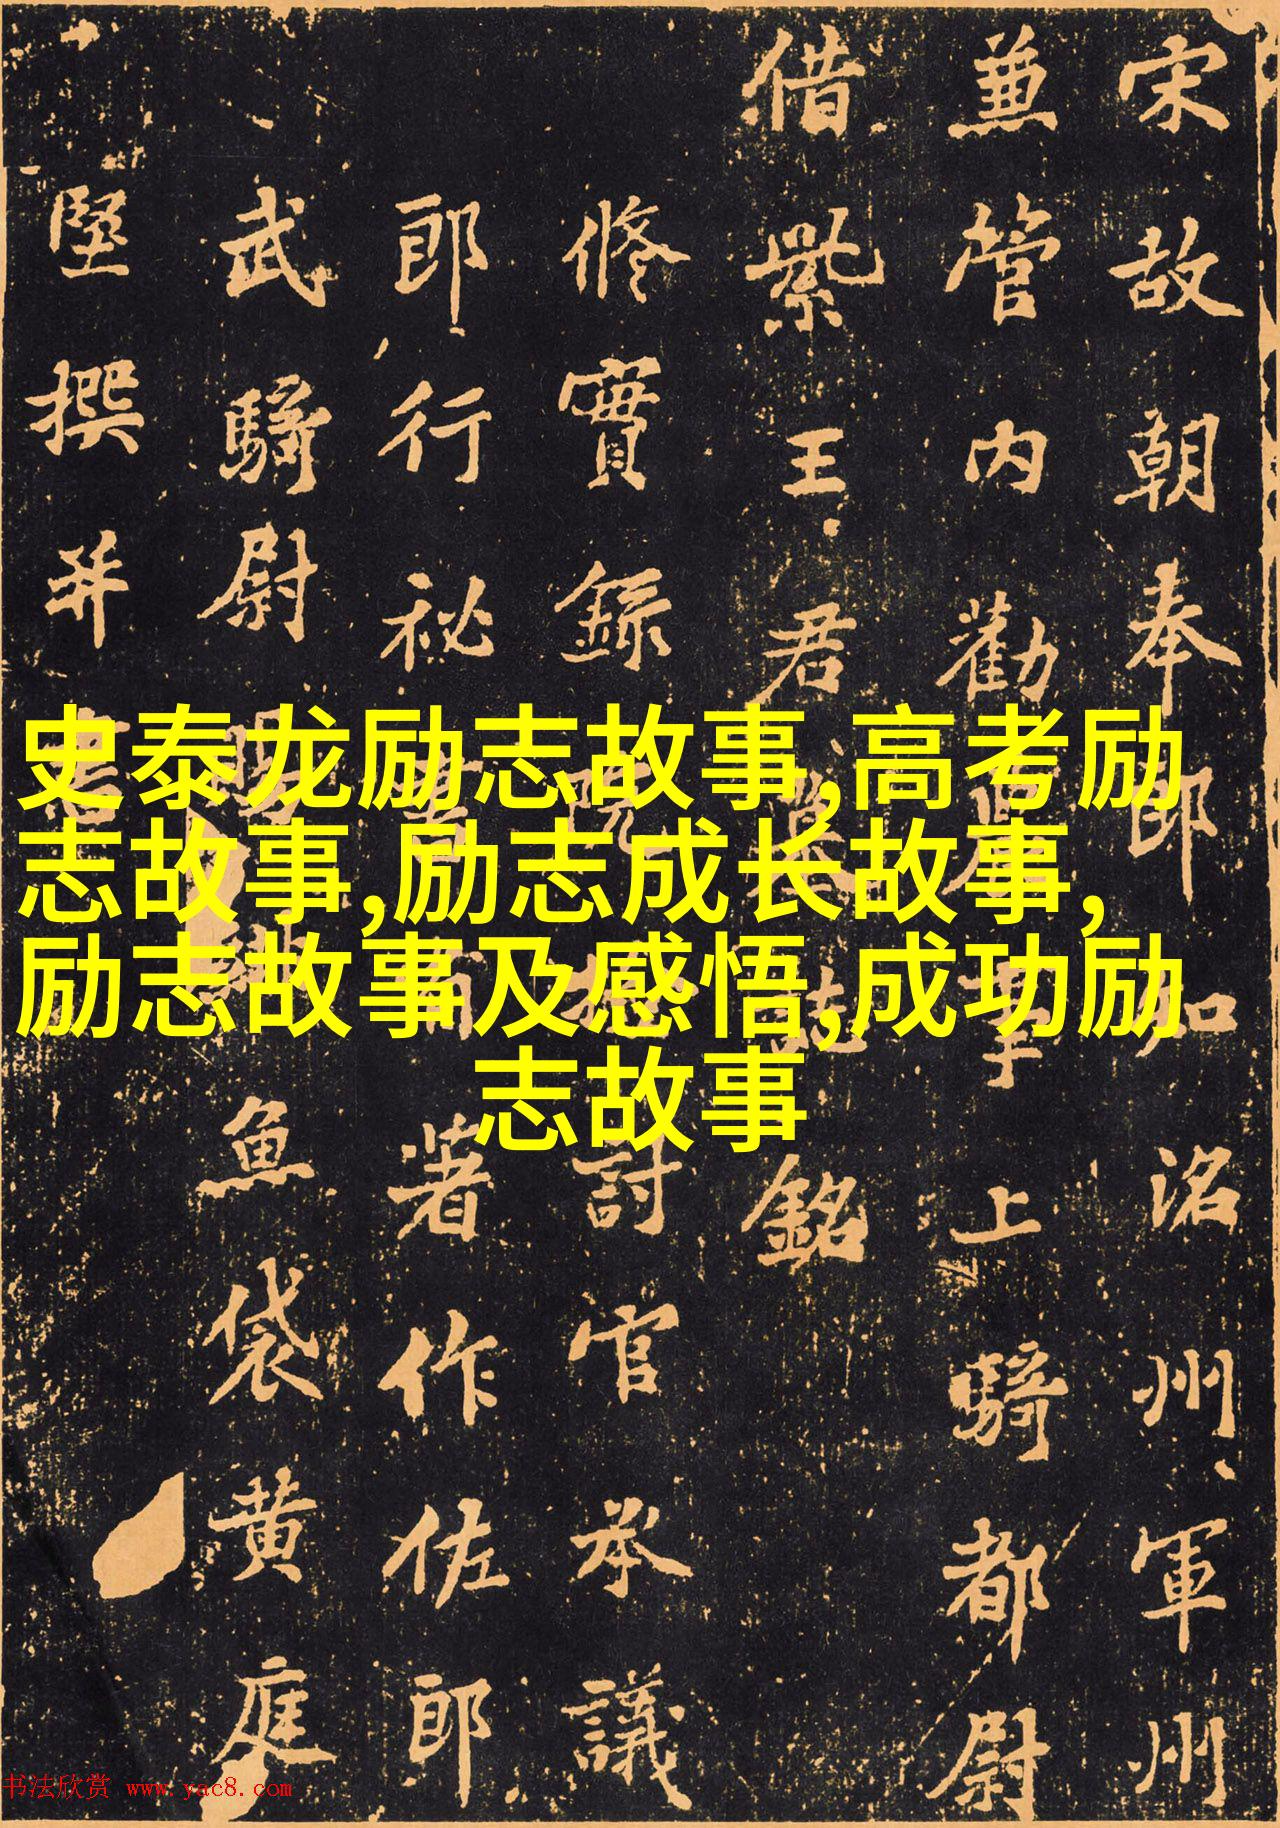 宋故朝奉郎知洺州軍州
兼管内勸農事上騎都尉
借紫王君墓誌銘
修實錄院檢討官承議
郎行祕書省著作佐郎
武騎尉賜緋魚袋黄庭
堅撰并書
史泰龙励志故事,高考励
志故事,励志成长故事,
励志故事及感悟,成功励
志故事
书法欣赏 www.yac8.com